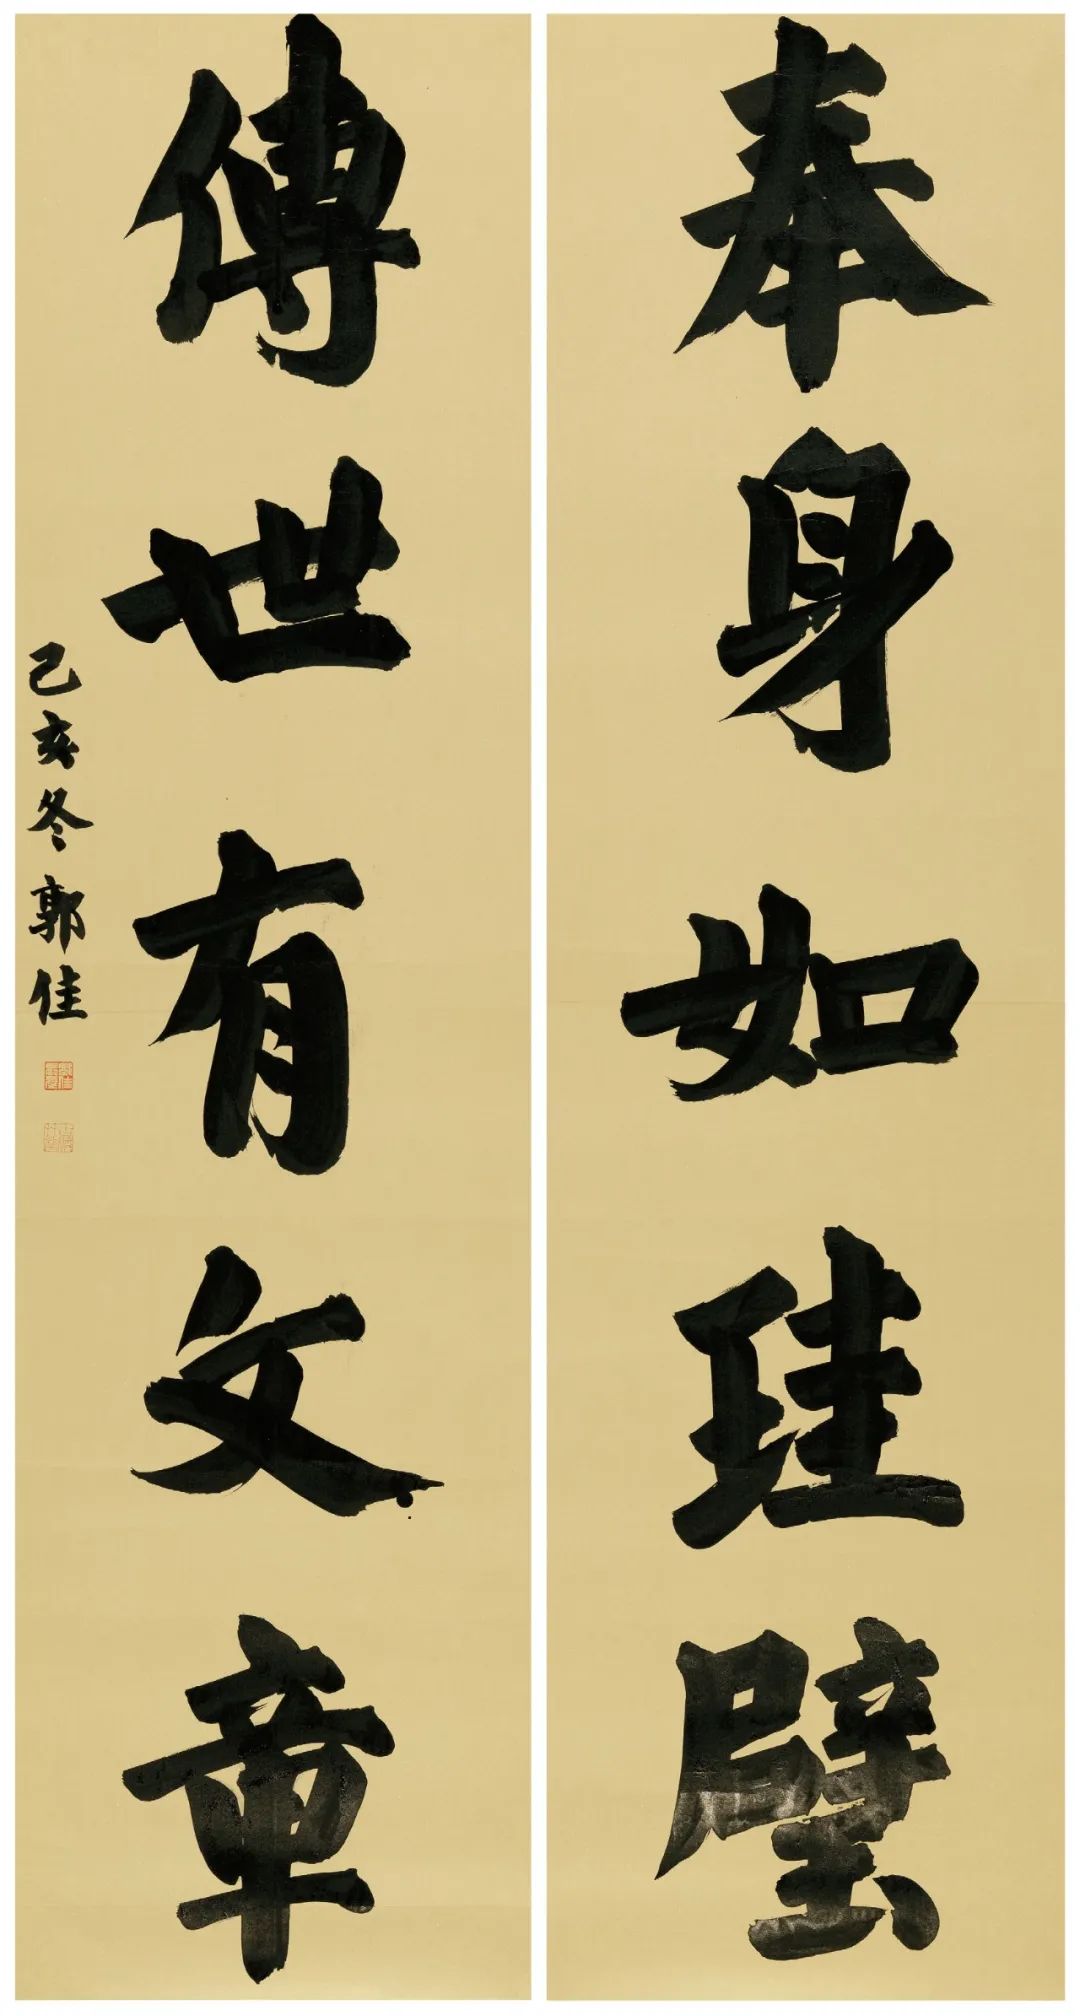 奉身如珪璧
傳世有文章
己亥冬郭佳